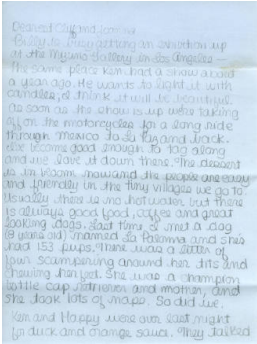 Dearest Cliff and
Billy is busy getting an exhibition up
at the Mizuno Gallery in Los Angeles –
the same place Ken had a show about
a year ago. He wants to light it with
candles, I think it will be beautiful.
As soon as the show is up we're taking
off on the motorcycles for a long ride
through Mexico to and back.
I've become good enough to tag along
and we love it down there. The desert
is in bloom now and the people are easy
and friendly in the tiny villages we go to
Usually there is no hot water but there
is always good food, coffee and great
looking dogs. Last time I met a dog
(9 years old) named La Paloma and she's
had 153 pups. There was a litter of
four scampering around her tits and
chewing her feet. She was a champion
bottle cap retriever and mother, and
she took lots of naps. So did we.
Ken and Happy were over last night
for duck and orange sauce. They talked